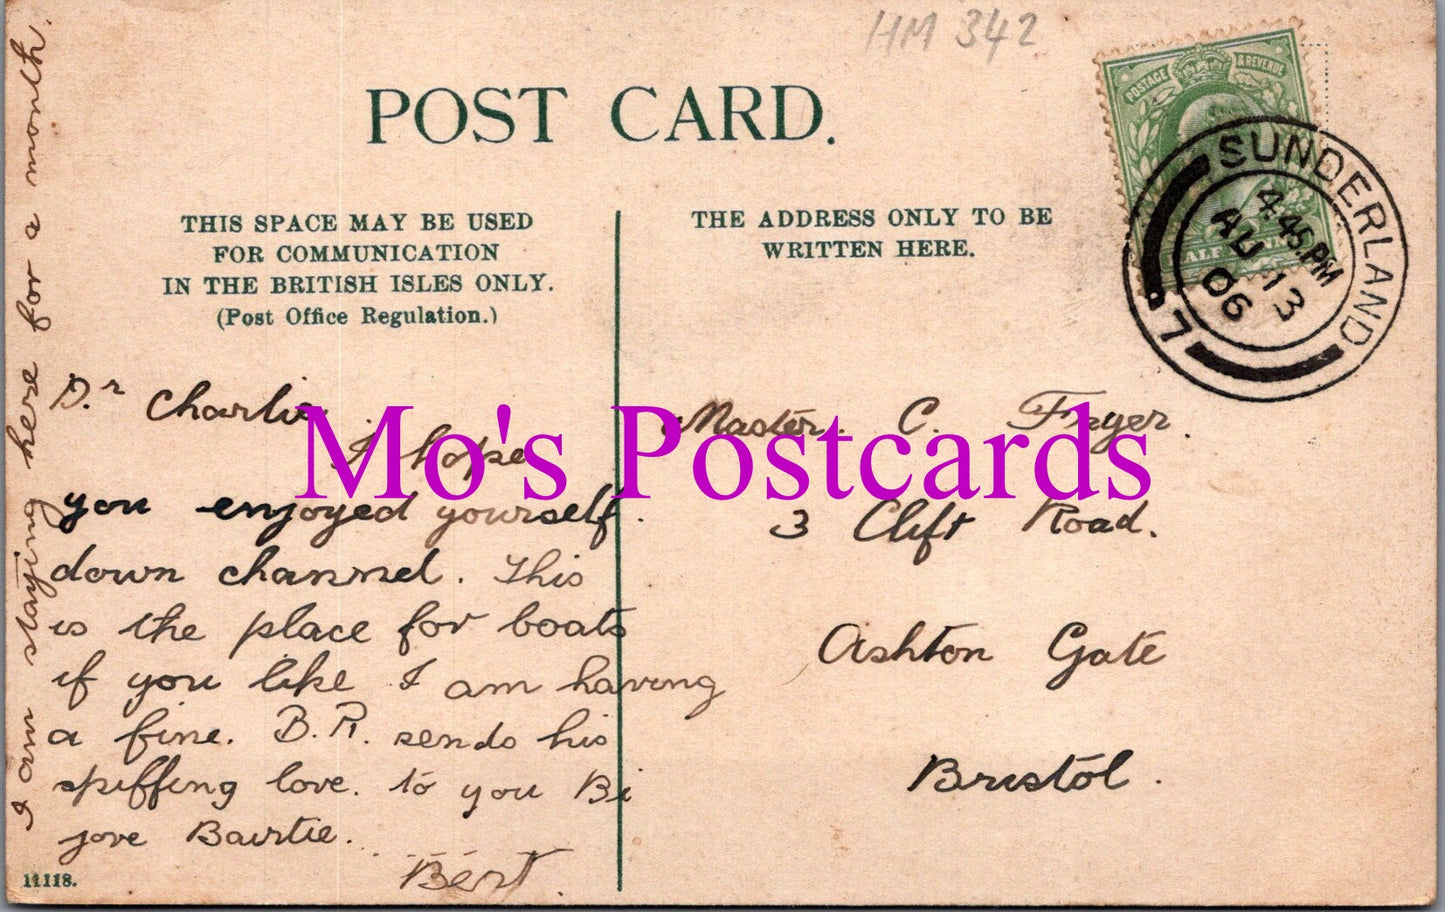 HM 342
POST CARD.
POSTAGE & REVENUE
HALF PENNY
SUNDERLAND
4.45 PM
AU 13
06
7
THIS SPACE MAY BE USED
FOR COMMUNICATION
IN THE BRITISH ISLES ONLY.
(Post Office Regulation.)
THE ADDRESS ONLY TO BE
WRITTEN HERE.
Dr Charlie
I hope
you enjoyed yourself.
down channel. This
is the place for boats
if you like I am having
a fine. B.R. sends his
spiffing love. to you Bi
jove Bairtie.
Bert.
I am staying here for a month.
Master. C. Fryer.
3 Clift Road.
Ashton Gate
Bristol.
Mo's Postcards
11118.